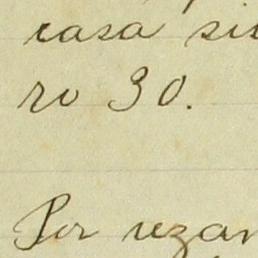 casa si
ro 30.
Por